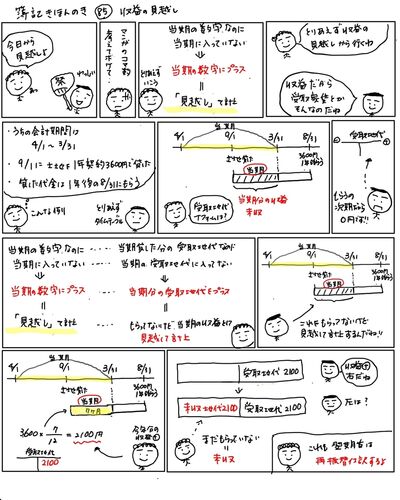 簿記きほんのき 85 収益の見越し
今日から
見越しよ
祭
わっしょい
マンガのコマ割
考えてボケて
当期の数字なのに
当期に入っていない
とりあえず
いこう
当期の数字にプラス
「見越し」てます
とりあえず収益の
見越しから行くわ
収益だから
受取家賃とか
そんなのだな
・うちの会計期間は
4/1〜3/31
・9/1に土地を1年契約3600円で貸した
・貸した代金は1年後の8/31にもらう
こんな例
とりあえず
タイムテーブル
当期
4/1
9/1
3/31
8/31
土地を貸した
3600円
1年分もらう
当期
受取地代
ナフォームは?
当期分の収益
未収
受取地代
もらうの
次期だから
0円だ!!
当期の数字なのに
当期に入っていない
当期の数字にプラス
「見越し」てます
当期貸した分の受取地代なのに
当期の受取地代に入ってない
当期分の受取地代をプラス
もらってないけど当期の収益として
見越し計上
4/1
9/1
3/31
8/31
土地を貸した
3600円
1年分もらう
当期
これをもらってないけど
見越し計上するんだね!!
当期
4/1
9/1
3/31
8/31
土地を貸した
3600円
1年分もらう
当期
7ヶ月
3600×7/12
=2100円
受取地代
2100
受取地代 2100
収益⊕
右だね
未収地代2100 受取地代 2100
左は?
まだもらっていない
未収
これも翌期首は
再振替仕訳するよ